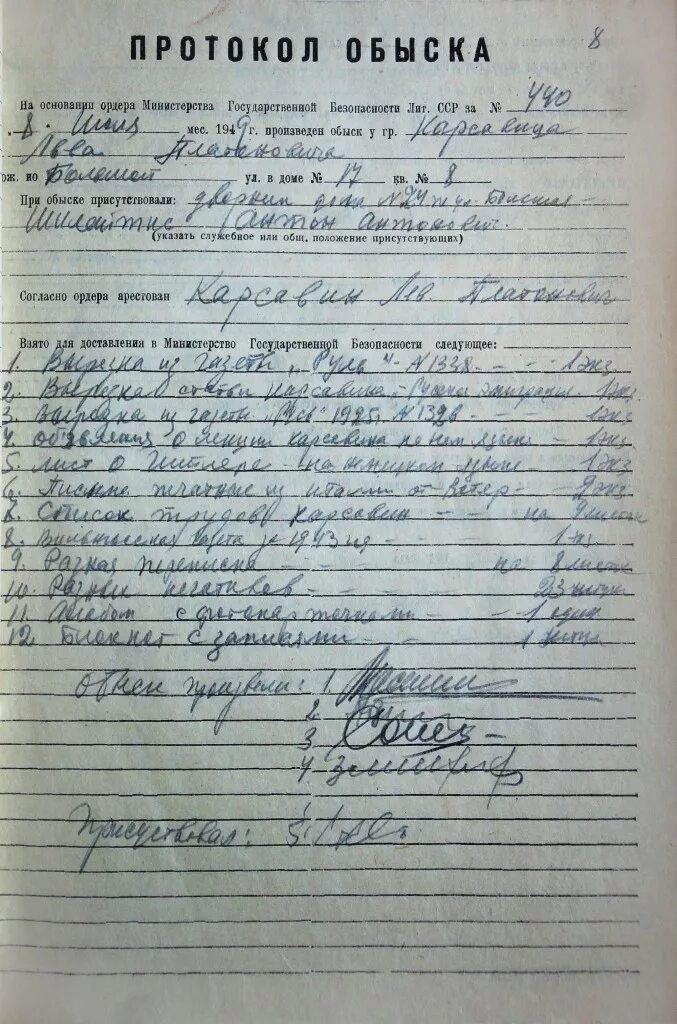 8
ПРОТОКОЛ ОБЫСКА
На основании ордера Министерства Государственной Безопасности Лит. ССР за № 440
8. мес. 1949 г. произведен обыск у гр. Карсавина
Льва Платоновича
ож. по Большой ул. в доме № 17 кв. № 8
При обыске присутствовали: дворник дома №24 по ул.
Шилайтис Антон Антонович.
(указать служебное или общ. положение присутствующих)
Согласно ордера арестован Карсавин Лев Платонович
Взято для доставления в Министерство Государственной Безопасности следующее:
1. Вырезка из газеты „Руль" - №1338 - - - 1 экз.
2. Вырезка статьи Карсавина - эмиграция 1 экз.
3. Вырезка из газеты 1925 г. №1326 - 1 экз.
4. Объявления о лекции Карсавина на нем. языке - 1 экз
5. Лист о Гитлере - на немецком языке - 1 экз
6. печатные из Италии от Ветер - 2 экз
7. Список трудов Карсавин - - на листах
8. газета за 1943 год - - 1 экз
9. Разная переписка - - на 8 листах
10. Разных негативов - - 23 штуки
11. Альбом с фотокарточками - - 1 один
12. Блокнот с записями - - 1 штука
Обыск произвели: 1.
2.
3
4
Присутствовал: